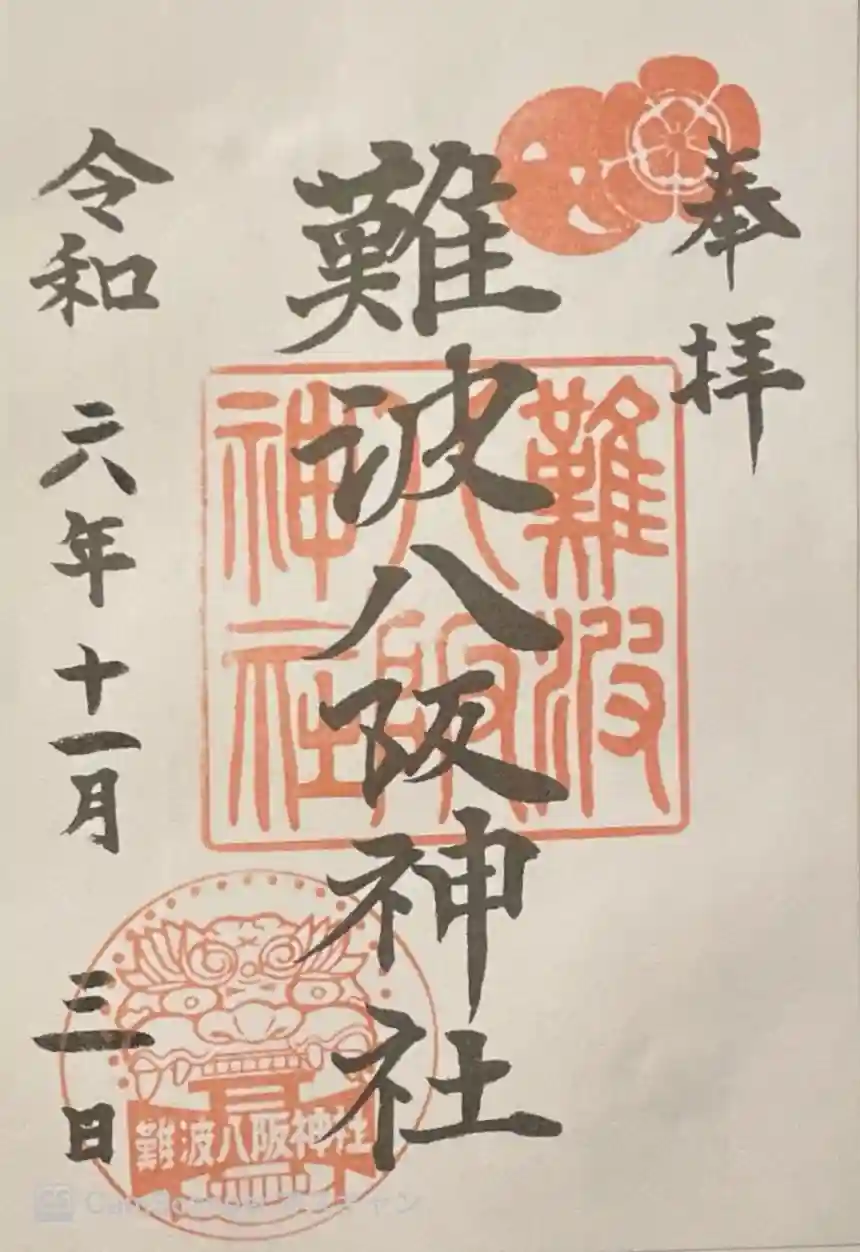 奉拝
難波八阪神社
令和 六年 十一月 三日
難波八阪神社
難波八阪神社